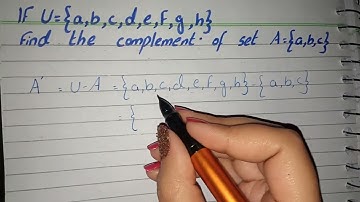 If U={a,b,c,d,e,f,g,h}
Find the complement of set A={a,b,c}
A' = U-A = {a,b,c,d,e,f,g,h}-{a,b,c}
= {